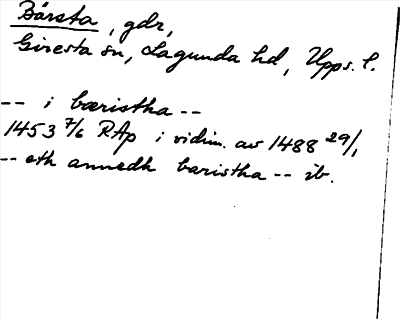 Bärsta, gdr,
Giresta sn, Lagunda hd, Upps. l.
-- i bæristha --
1453 7/6 RAp i vidim. av 1488 29/1
-- eth annedh baristha -- ib.